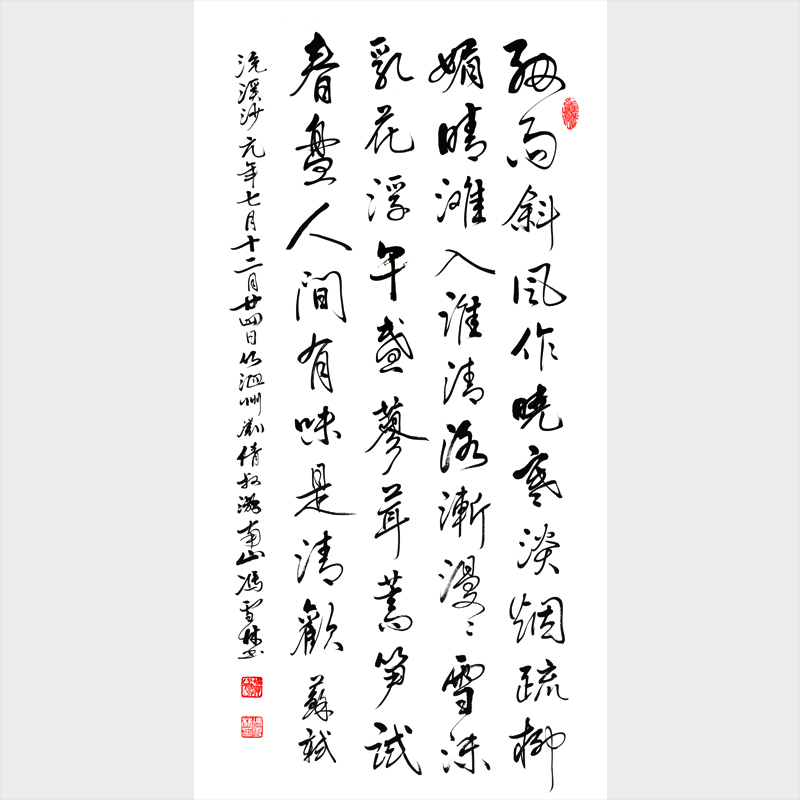 細雨斜風作曉寒淡烟疏柳
媚晴灘入淮清洛漸漫〻雪沫
乳花浮午盞蓼茸蒿笋試
春盤人間有味是清歡 蘇軾
浣溪沙元年七月十二月廿四日從泗州劉倩叔游南山馮雪林书